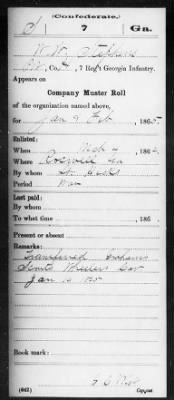 (Confederate.)
S 7 Ga.
W. W. Stephens
Co. H, 7 Reg't Georgia Infantry.
Appears on
Company Muster Roll
of the organization named above,
for Jan & Feb, 1865.
Enlisted:
When Mch 4, 1862.
Where Roswell Ga
By whom Hicks
Period War
Last paid:
By whom
To what time , 186 .
Present or absent
Remarks:
Transferred
Scouts Wheelers
Jan 12 1865
Book mark:
(642)
Copyist.